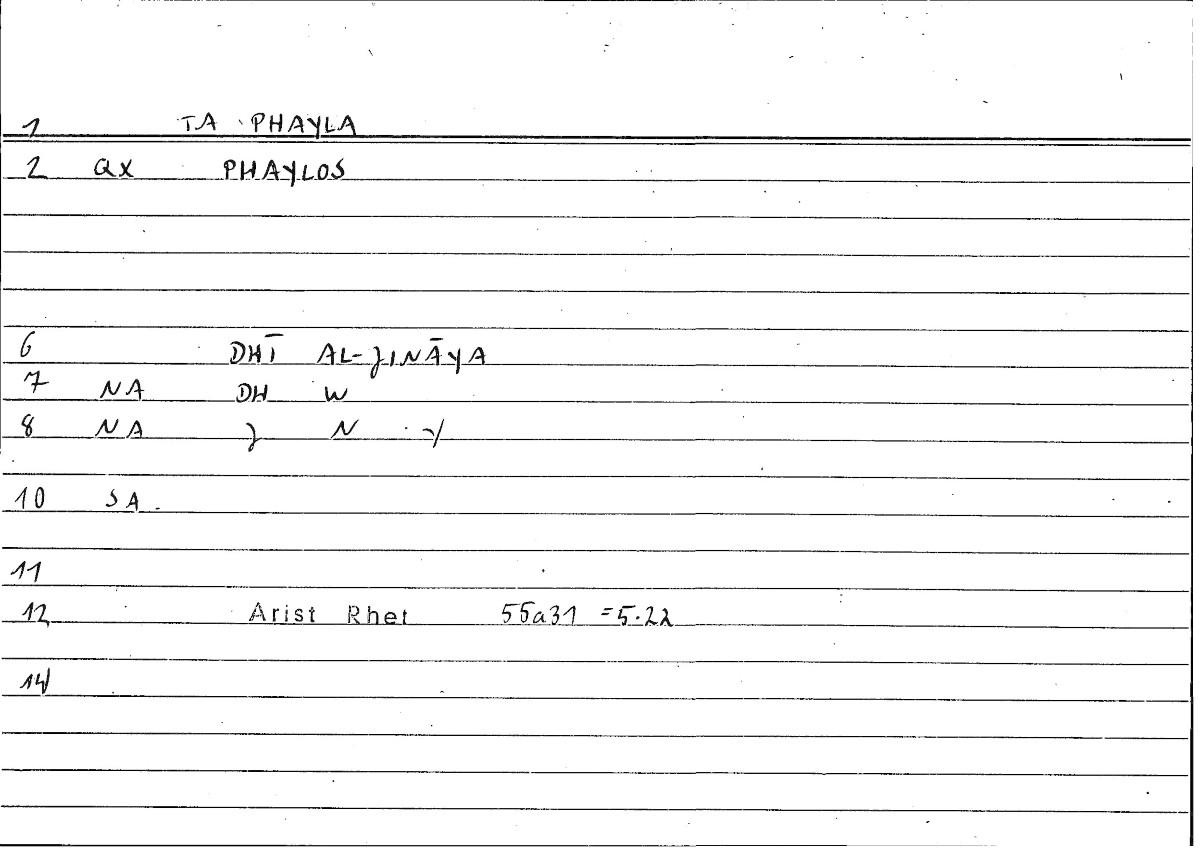 1 TA PHAYLA
2 QX PHAYLOS
6 DHĪ AL-JINĀYA
7 NA DH W
8 NA J N Y
10 SA.
11
12 Arist Rhet 55a31 =5.22
14